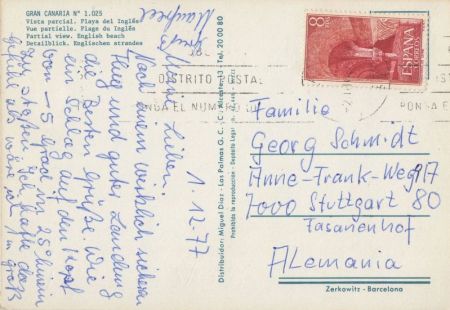 GRAN CANARIA Nº 1.025
Vista parcial. Playa del Inglés
Vue partielle. Plage du Inglés
Partial view. English beach
Detailblick. Englischen strandes
1. 12. 77
Meine Lieben.
Nach einem wirklich sicheren
Flug und guter Landung
die besten Grüße. Wie
ein Schlag auf den Kopf
von -5 Grad in 25° hinein
Distribuidor: Miguel Díaz - Las Palmas G. C. - C/. Alicante, 13 - Tel. 20 00 80
Prohibida la reproducción - Depósito Legal
8 PTAS
ESPAÑA
CORREOS
DISTRITO POSTAL
PONGA EL NUMERO
PONGA E
Familie
Georg Schmidt
Anne-Frank-Weg 17
7000 Stuttgart 80
Fasanenhof
Alemania
Zerkowitz - Barcelona